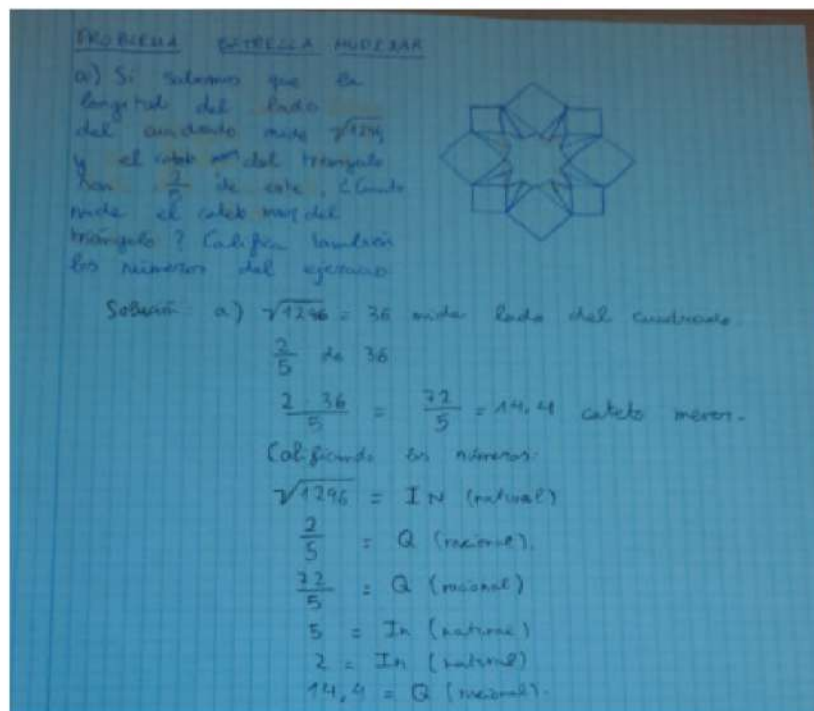 PROBLEMA ESTRELLA MUDEJAR
a) Si sabemos que la
longitud del lado
del cuadrado mide √1296
y el cateto del triángulo
son 2/5 de este, ¿Cuánto
mide el cateto del
triángulo? Califica también
los números del ejercicio.
Solución: a) √1296 = 36 mide lado del cuadrado.
2/5 de 36
2 · 36 / 5 = 72/5 = 14,4 cateto menor.
Calificando los números:
√1296 = IN (natural)
2/5 = Q (racional).
72/5 = Q (racional)
5 = In (natural)
2 = In (natural)
14,4 = Q (racional).